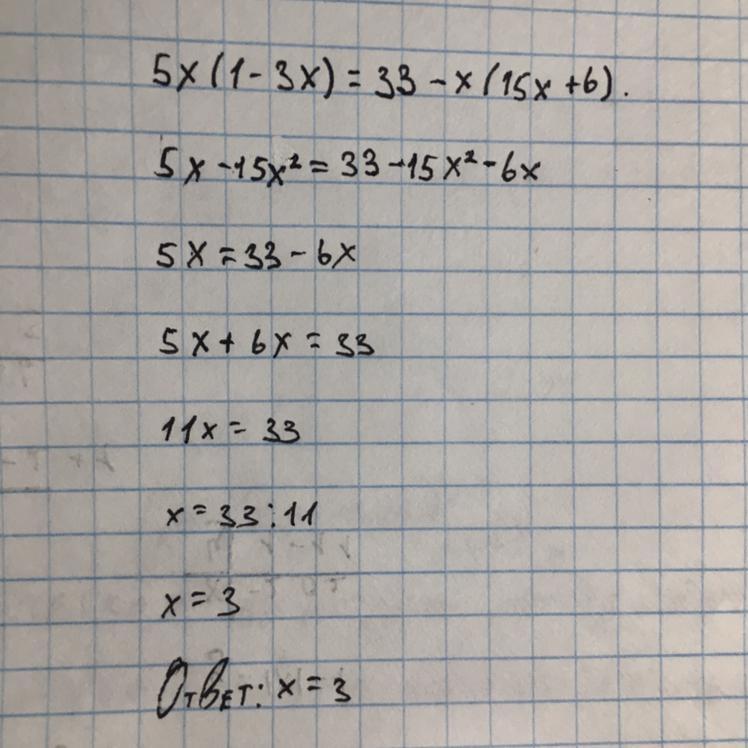 5x(1-3x)=33-x(15x+6).
5x-15x²=33-15x²-6x
5x=33-6x
5x+6x=33
11x=33
x=33:11
x=3
Ответ: x=3